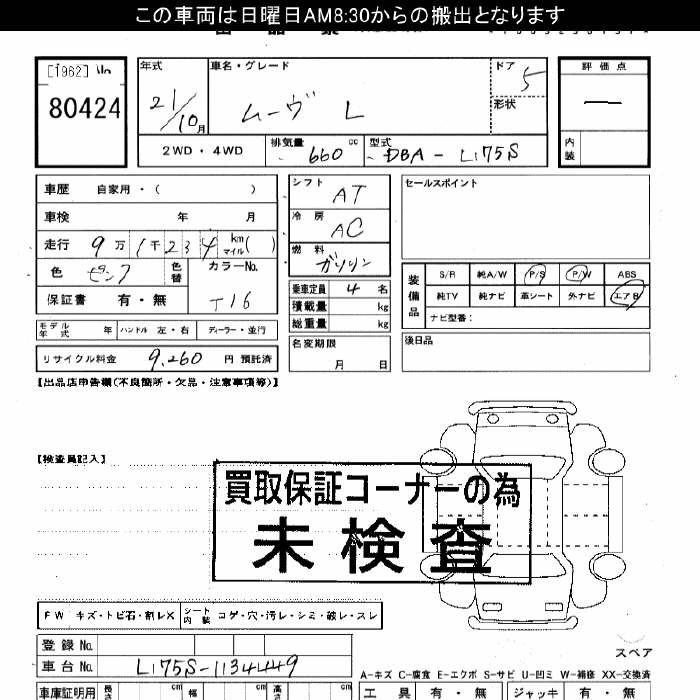 この車両は日曜日AM8:30からの搬出となります
[1962]
80424
年式
21/10月
車名・グレード
ムーヴ L
ドア
5
形状
評価点
—
内装
2WD・4WD
排気量 660 cc
型式 DBA-L175S
車歴 自家用・( )
車検 年 月
走行 9万1千234 km マイル( )
色
色替
カラーNo.
T16
保証書 有・無
シフト
AT
冷房
AC
燃料
ガソリン
乗車定員 4 名
積載量 kg
総重量 kg
名変期限
月 日
セールスポイント
装備品
S/R 純A/W P/S P/W ABS
純TV 純ナビ 革シート 外ナビ エアB
ナビ型番:
後日品
モデル年式 年 ハンドル 左・右 ディーラー・並行
リサイクル料金 9,260 円 預託済
【出品店申告欄(不良箇所・欠品・注意事項等)】
【検査員記入】
買取保証コーナーの為
未検査
FW キズ・トビ石・割レX
シート内装 コゲ・穴・汚レ・シミ・破レ・スレ
登録No.
車台No. L175S-1134449
スペア
A-キズ C-腐食 E-エクボ S-サビ U-凹ミ W-補修 XX-交換済
車庫証明用 長さ cm 幅 cm 高さ cm
工具 有・無 ジャッキ 有・無